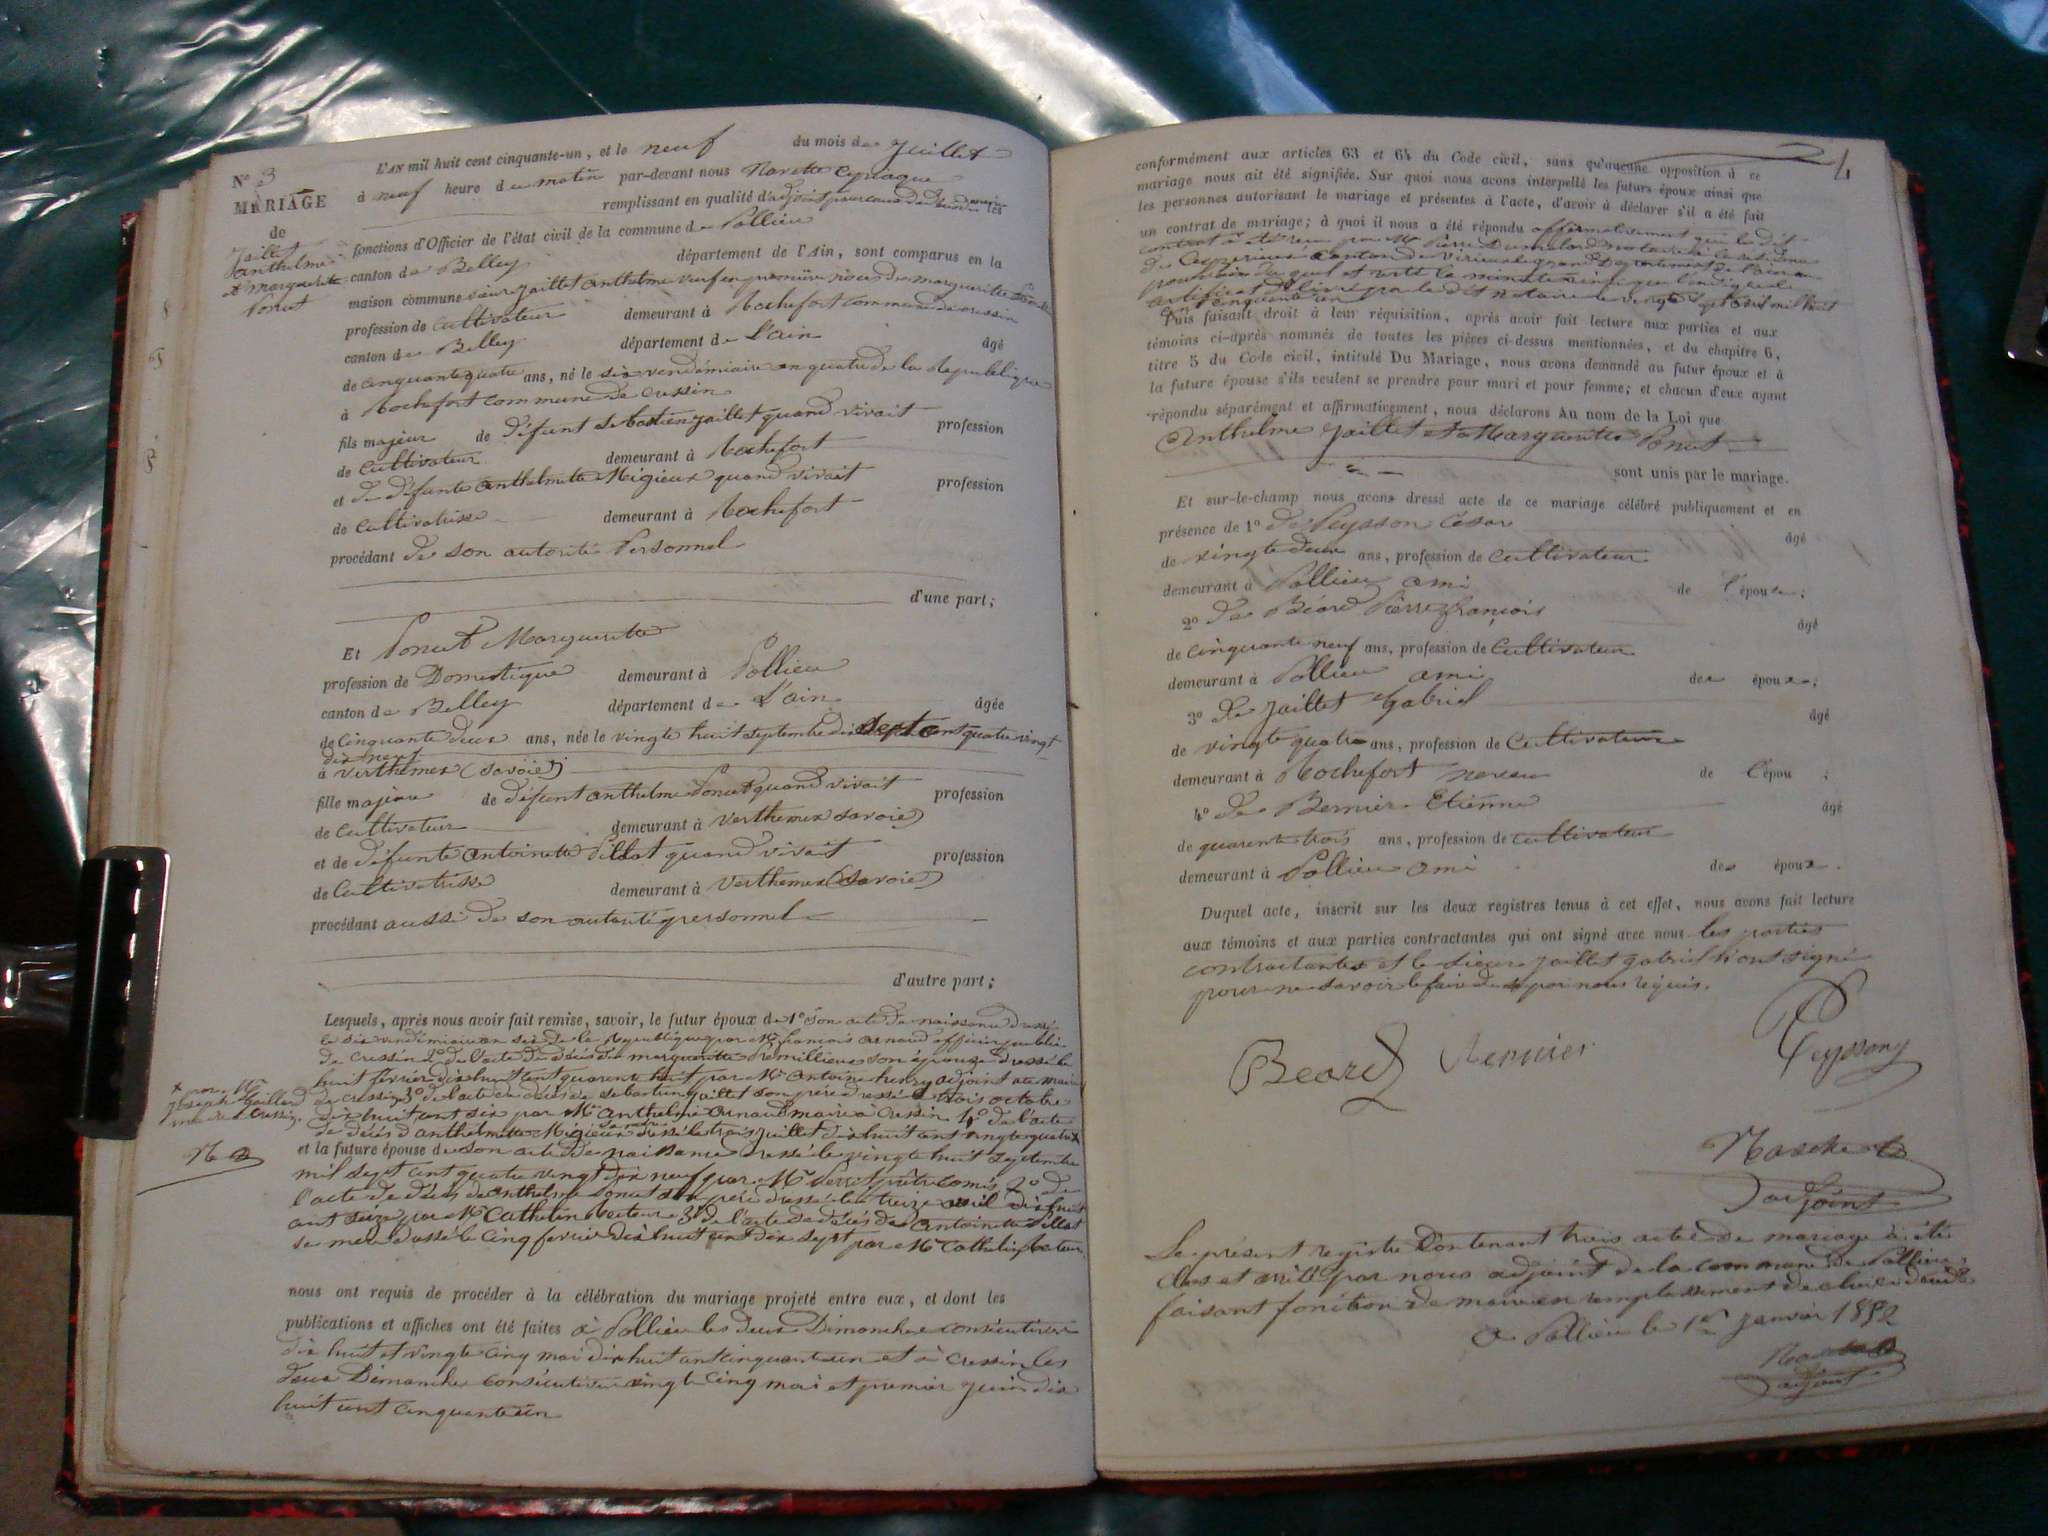 N° 3
MARIAGE
de
Jaillet
anthelme
et marguerite
Ponut
L'AN mil huit cent cinquante-un, et le neuf du mois de Juillet
à neuf heure du matin par-devant nous
remplissant en qualité d'adjoint les
fonctions d'Officier de l'état civil de la commune de Pollieu
canton de Belley département de l'Ain, sont comparus en la
maison commune sieur jaillet anthelme veuf en première noces de marguerite
profession de Cultivateur demeurant à Rochefort commune de cressin
canton de Belley département de L'ain âgé
de cinquante quatre ans, né le six vendémiaire an quatre de la République
à Rochefort commune de cressin
fils majeur de défunt sebastien jaillet quand vivait profession
de Cultivateur demeurant à Rochefort
et de défunte anthelmette Migieux quand vivait profession
de Cultivatrisse demeurant à Rochefort
procédant de son autorité Personnel
d'une part;
Et Ponut Marguerite
profession de Domestique demeurant à Pollieu
canton de Belley département de L'ain âgée
de cinquante deux ans, née le vingt huit septembre dix sept cent quatre vingt
dix neuf
à verthemex (savoie)
fille majeure de défunt anthelme Ponut quand vivait profession
de Cultivateur demeurant à verthemex savoie)
et de défunte antoinette Pillot quand vivait profession
de Cultivatrisse demeurant à verthemex (savoie)
procédant aussi de son autorité personnel
d'autre part;
Lesquels, après nous avoir fait remise, savoir, le futur époux de 1° son acte de naissance dressé
le six vendémiaire an six de la République par Mr francois arnaud officier public
de cressin 2° de l'acte de décès de marguerite Remillieux son épouse dressé le
huit février dix huit cent quarente huit par Mr antoine henry adjoint au maire
de cressin 3° de l'acte de décès de sebastien jaillet son père dressé le trois octobre
dix huit cent six par Mr anthelme arnaud maire à cressin 4° de l'acte
de décès d'anthelmette Migieux sa mère dressé le trois juillet dix huit cent vingt quatre
et la future épouse de son acte de naissance dressé le vingt huit septembre
mil sept cent quatre vingt dix neuf par Mr Perret prêtre comis 2° de
l'acte de décès de anthelme ponut son père dressé le treize avril dix huit
cent seize par Mr Cathelin Recteur 3° de l'acte de décès de antoinette Pillot
sa mère dressé le cinq fevrier dix huit cent dix sept par Mr Cathelin Recteur
nous ont requis de procéder à la célébration du mariage projeté entre eux, et dont les
publications et affiches ont été faites à Pollieu les deux Dimanche consécutives
dix huit et vingte cinq mai dix huit cent cinquante un et à cressin les
deux Dimanche consécutives vingt cinq mai et premier juin dix
huit cent cinquante un
conformément aux articles 63 et 64 du Code civil, sans qu'aucune opposition à ce
mariage nous ait été signifiée. Sur quoi nous avons interpellé les futurs époux ainsi que
les personnes autorisant le mariage et présentes à l'acte, d'avoir à déclarer s'il a été fait
un contrat de mariage; à quoi il nous a été répondu affirmativement que le dit
contrat à été reçu par Mr Pierre notaire à la résidence
de Ceyzerieu canton de Virieu le grand Département de l'ain
pouvoir du quel est resté la minute ainsi que l'indique le
certificat délivré par le dit notaire le vingt mil huit
cinquante un
Puis faisant droit à leur réquisition, après avoir fait lecture aux parties et aux
témoins ci-après nommés de toutes les pièces ci-dessus mentionnées, et du chapitre 6,
titre 5 du Code civil, intitulé Du Mariage, nous avons demandé au futur époux et à
la future épouse s'ils veulent se prendre pour mari et pour femme; et chacun d'eux ayant
répondu séparément et affirmativement, nous déclarons Au nom de la Loi que
Anthelme Jaillet et Marguerite Ponut
sont unis par le mariage.
Et sur-le-champ nous avons dressé acte de ce mariage célébré publiquement et en
présence de 1° de Peysson César âgé
de vingte deux ans, profession de Cultivateur
demeurant à Pollieu ami de l'épouse;
2° de Béard Pierre françois âgé
de cinquante neuf ans, profession de Cultivateur
demeurant à Pollieu ami des époux;
3° de Jaillet Gabriel âgé
de vingte quatre ans, profession de Cultivateur
demeurant à Rochefort neveu de l'épou ;
4° de Bernier Etienne âgé
de quarente trois ans, profession de cultivateur
demeurant à Pollieu ami des époux.
Duquel acte, inscrit sur les deux registres tenus à cet effet, nous avons fait lecture
aux témoins et aux parties contractantes qui ont signé avec nous les parties
contractantes et le sieur jaillet gabriel n'ont signé
pour ne savoir le faire de par nous requis.
Beard
Peysson
adjoint
Le présent registre Contenant trois actes de mariage à été
clos et arrêté par nous adjoint de la commune de Pollieu
faisant fonction de maire en remplassement de
à Pollieu le 1er Janvier 1852
adjoint